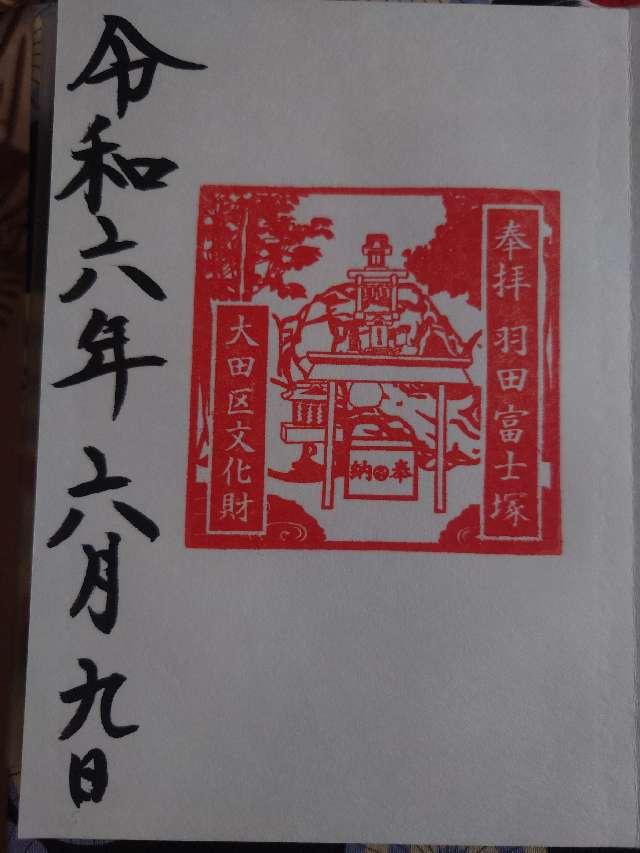 奉拝 羽田富士塚
奉納
大田区文化財
令和六年 六月九日